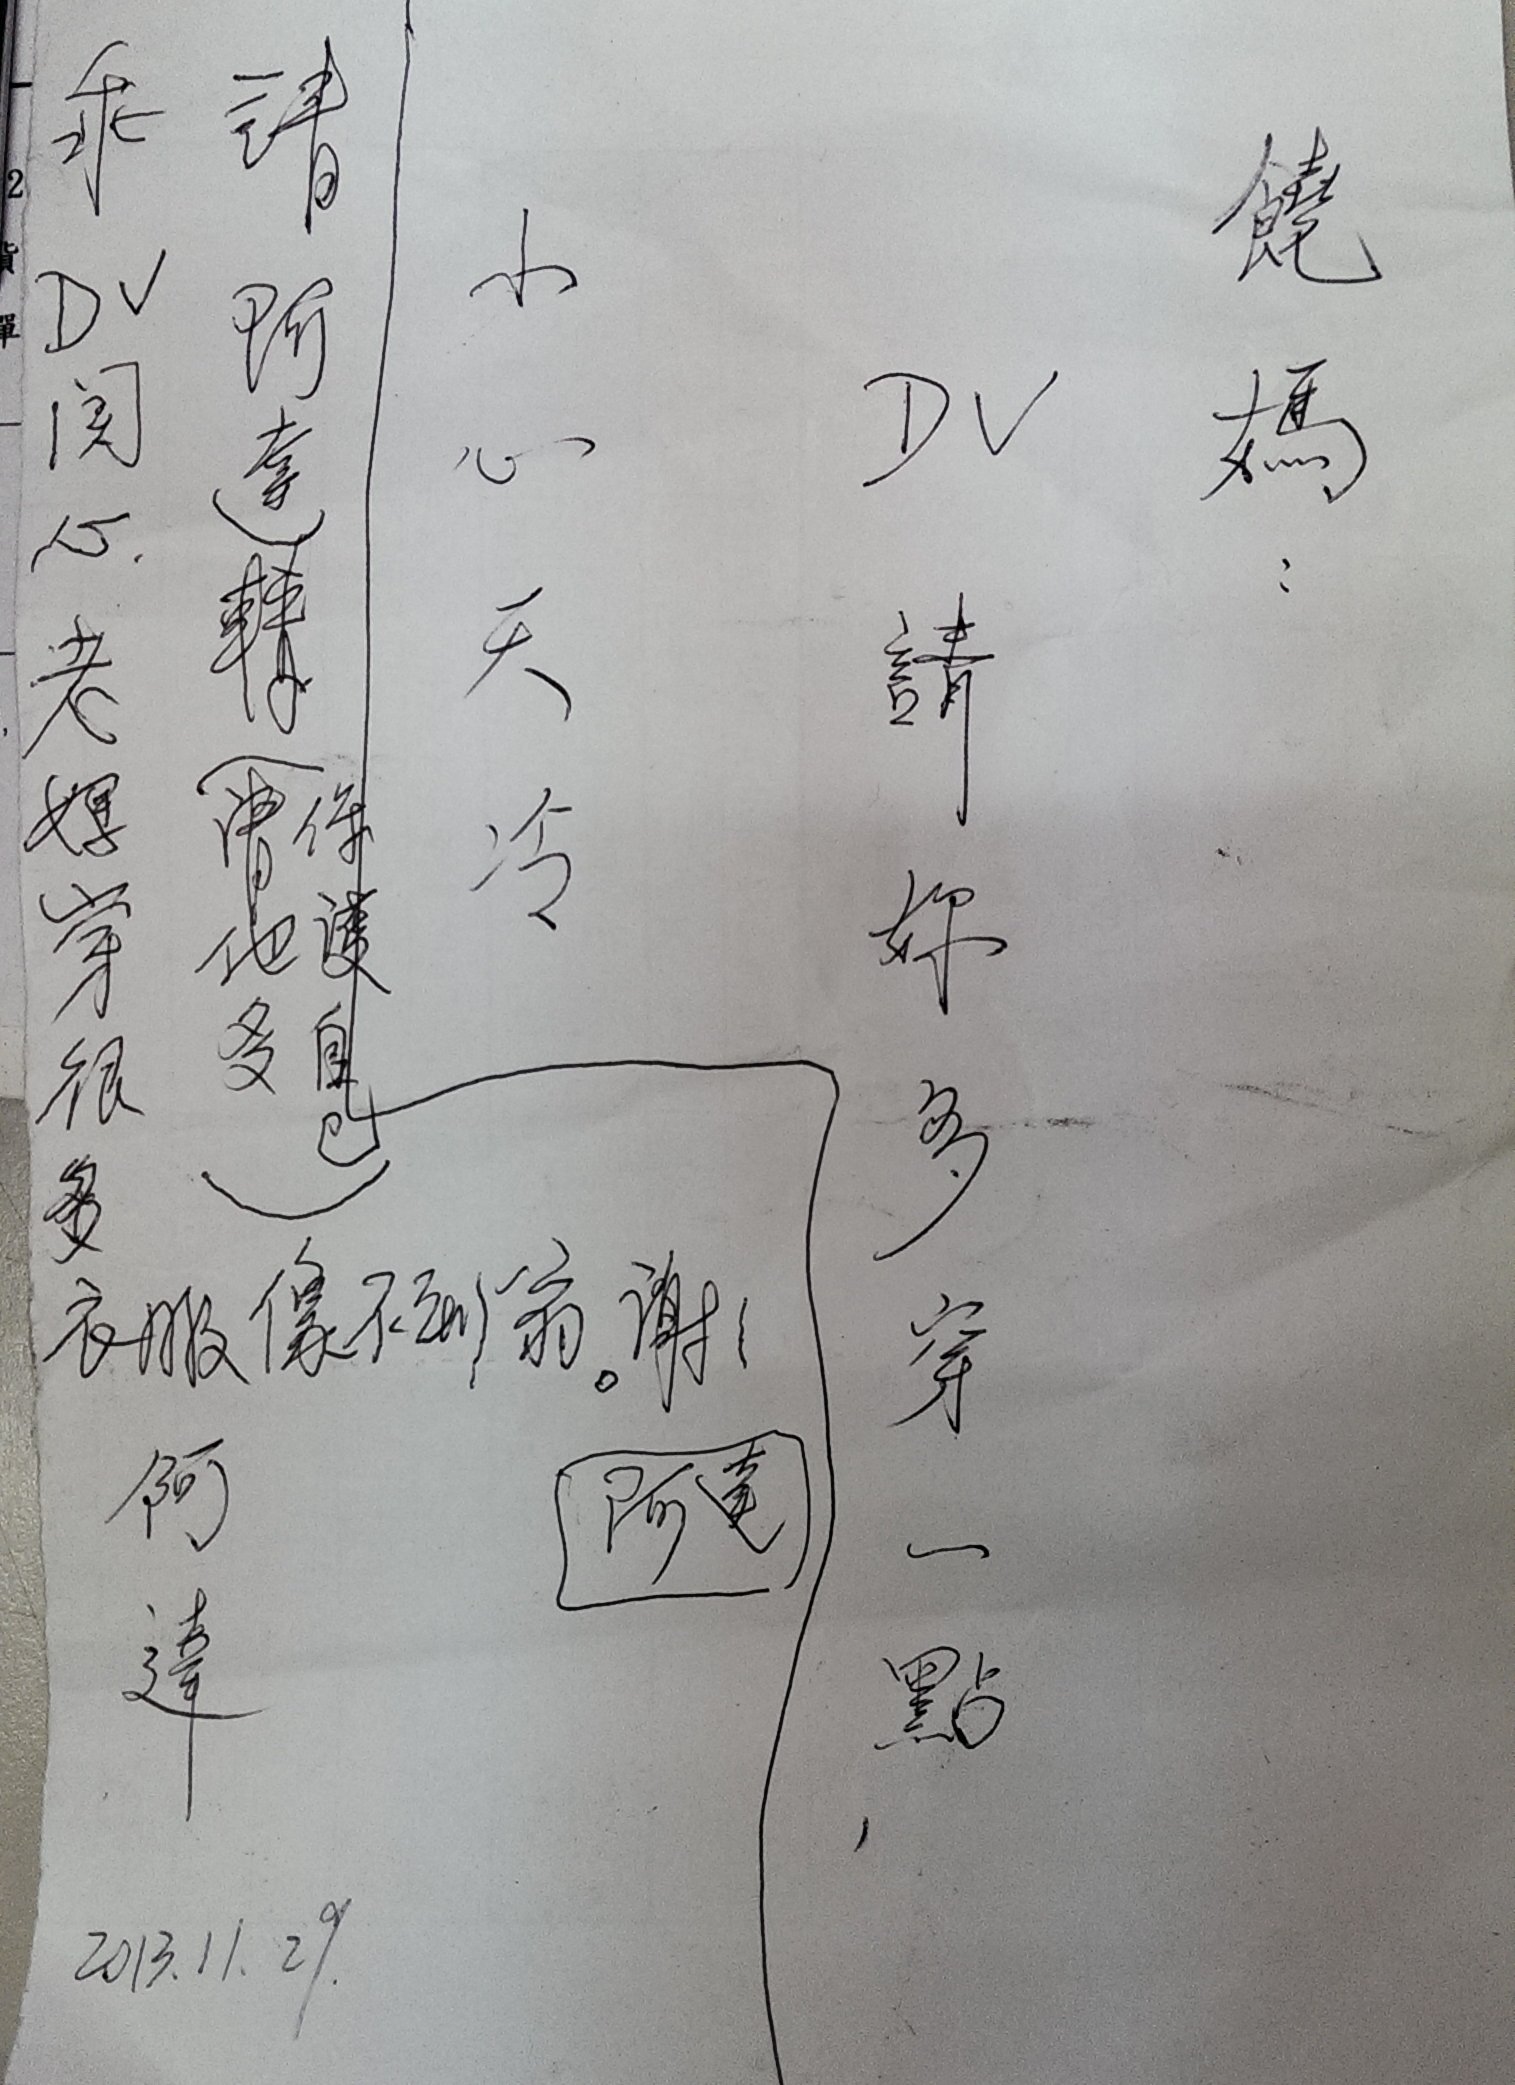 饒媽：
DV請妳多穿一點，
小心天冷
請阿達轉(請他多保護自己)
乖DV関心.老媽穿很多
衣服像不到翁。謝！
阿達
阿達
2013.11.29.
2
貨
單